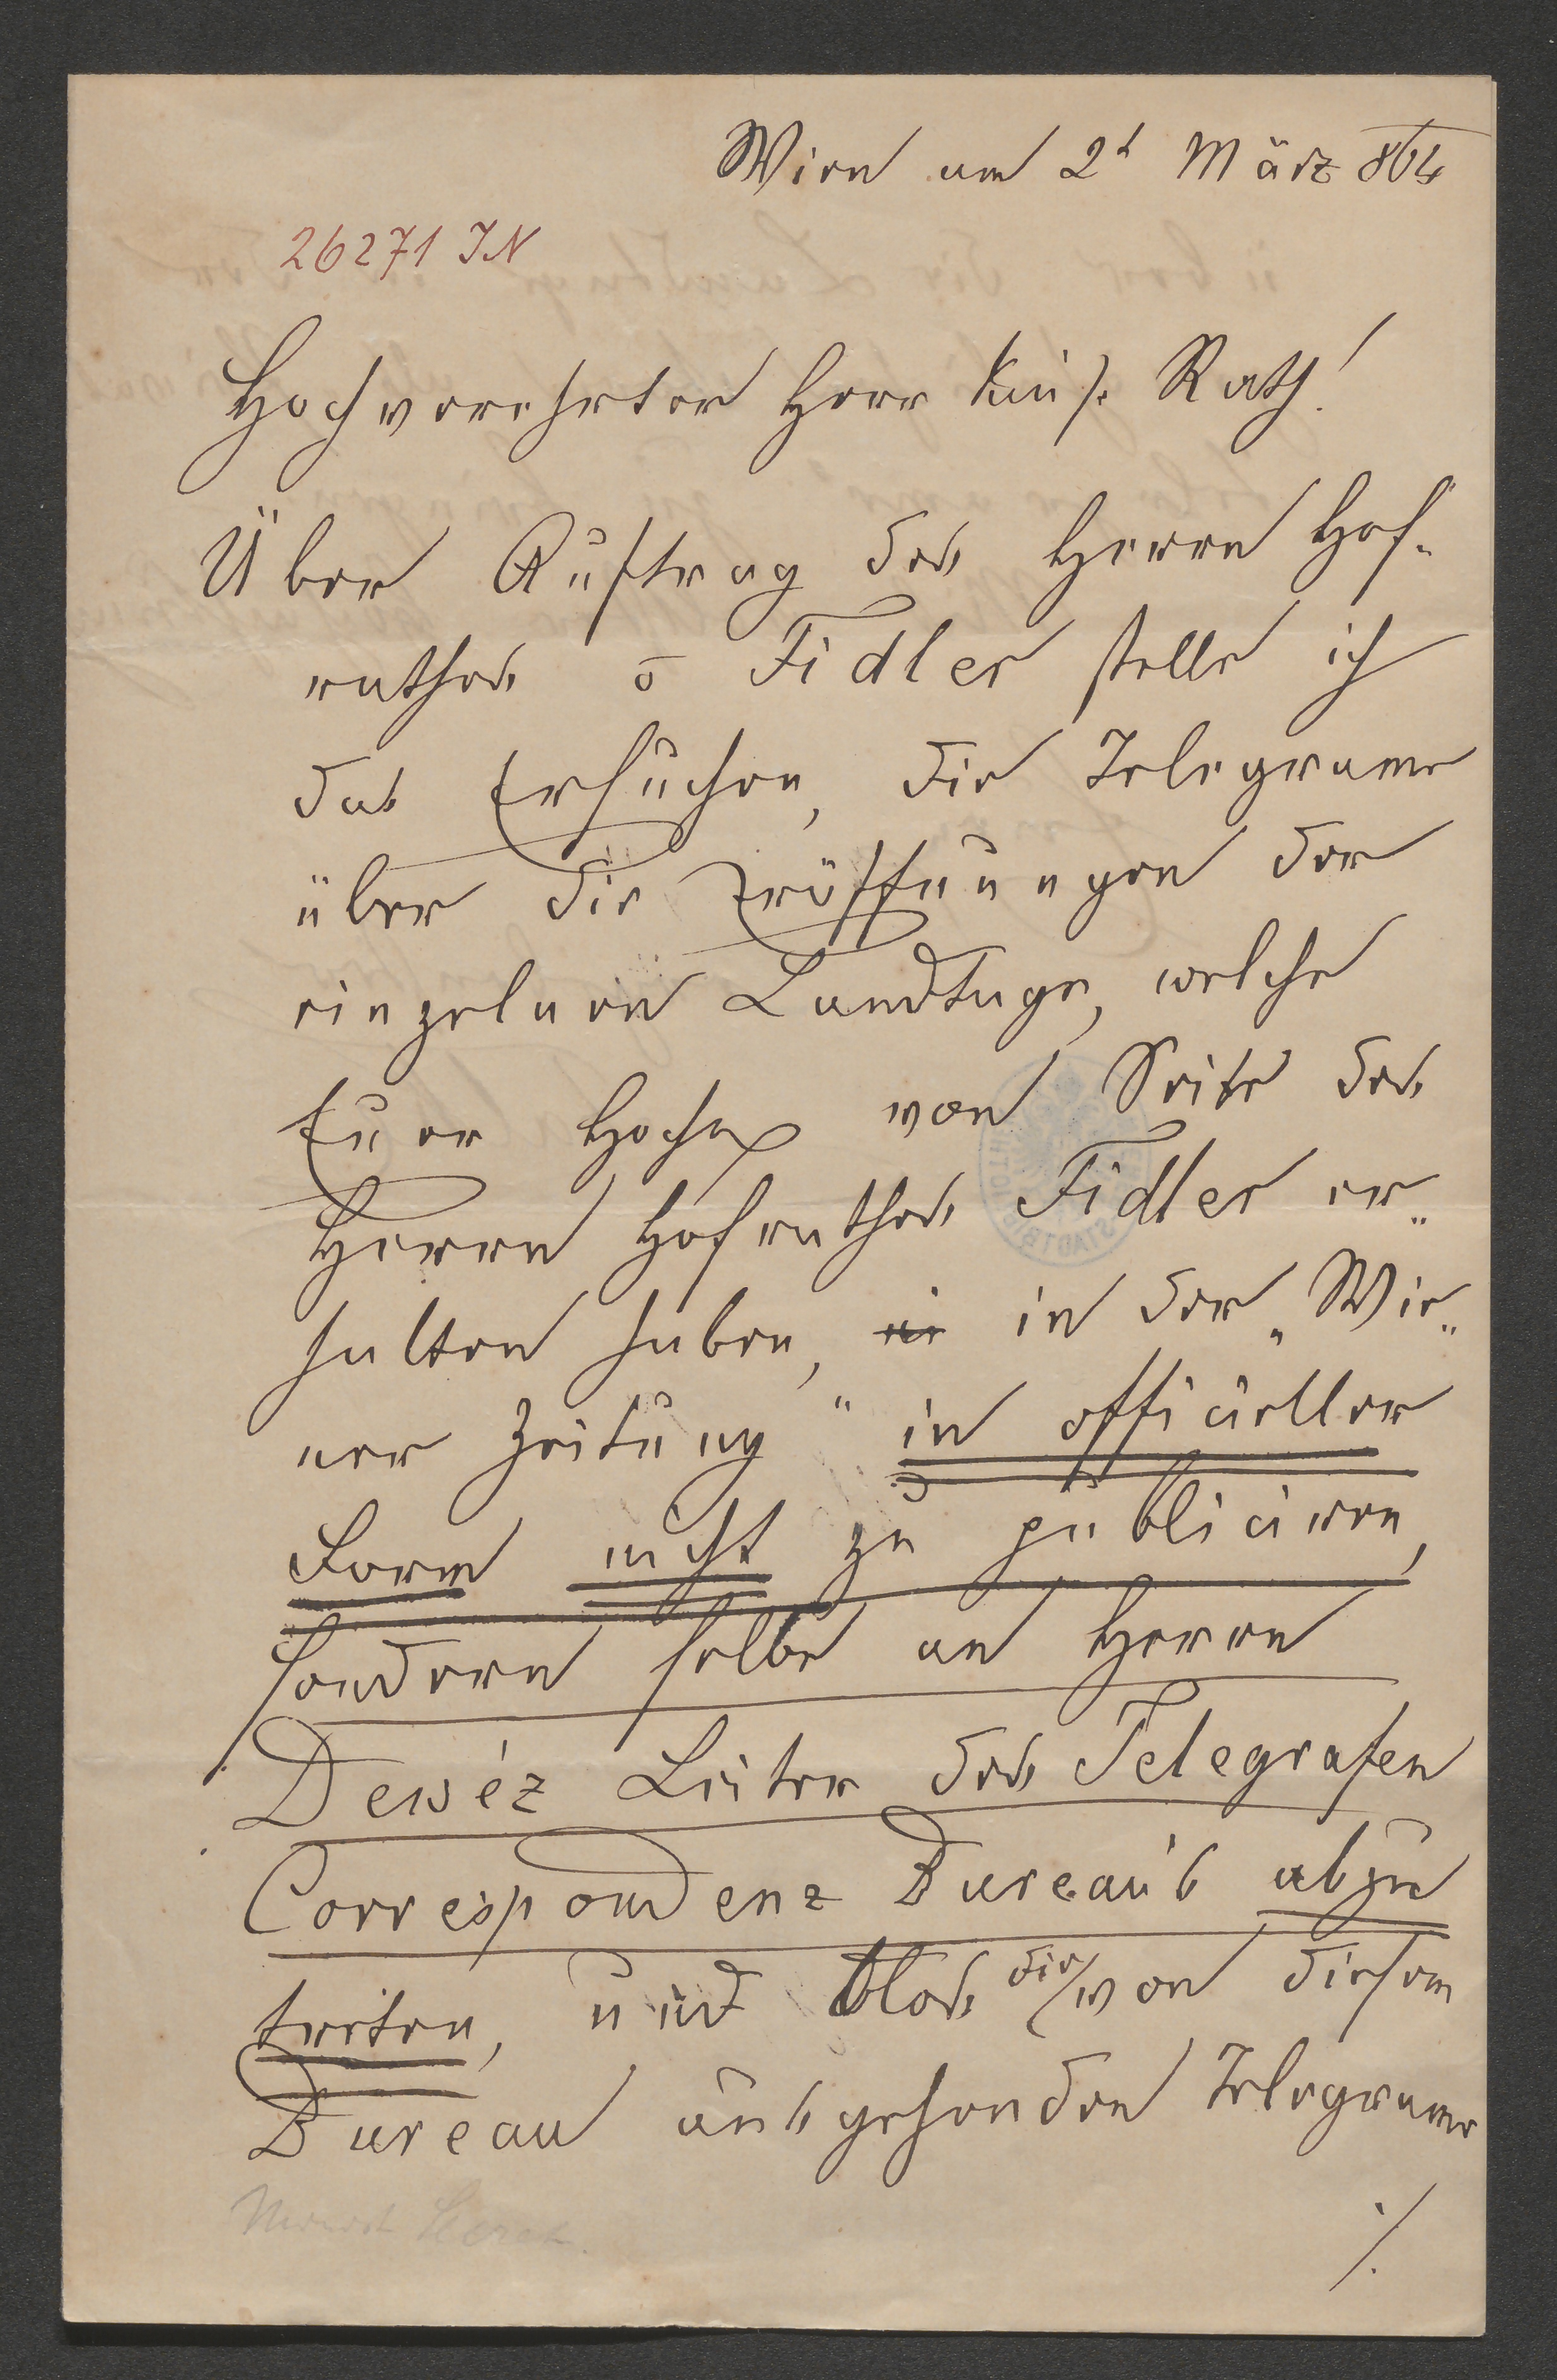 Wien am 2t März 864
26271 JN
Hochverehrter Herr kais. Rath!
Über Auftrag des Herrn Hof-
rathes v Fidler stelle ich
das Ersuchen, die Telegrame
über die Eröffnungen der
einzelnen Landtage, welche
Euer Hoch von Seite des
Herrn Hofrathes Fidler er-
halten haben, in der „Wie-
ner Zeitung" in officieller
Form nicht zu publiciren,
sondern selbe an Herrn
Dewéz Leiter des Telegrafen
Correspondenz Bureau's abzu
treten, und blos die von diesem
Bureau ausgehenden Telegrame
./.